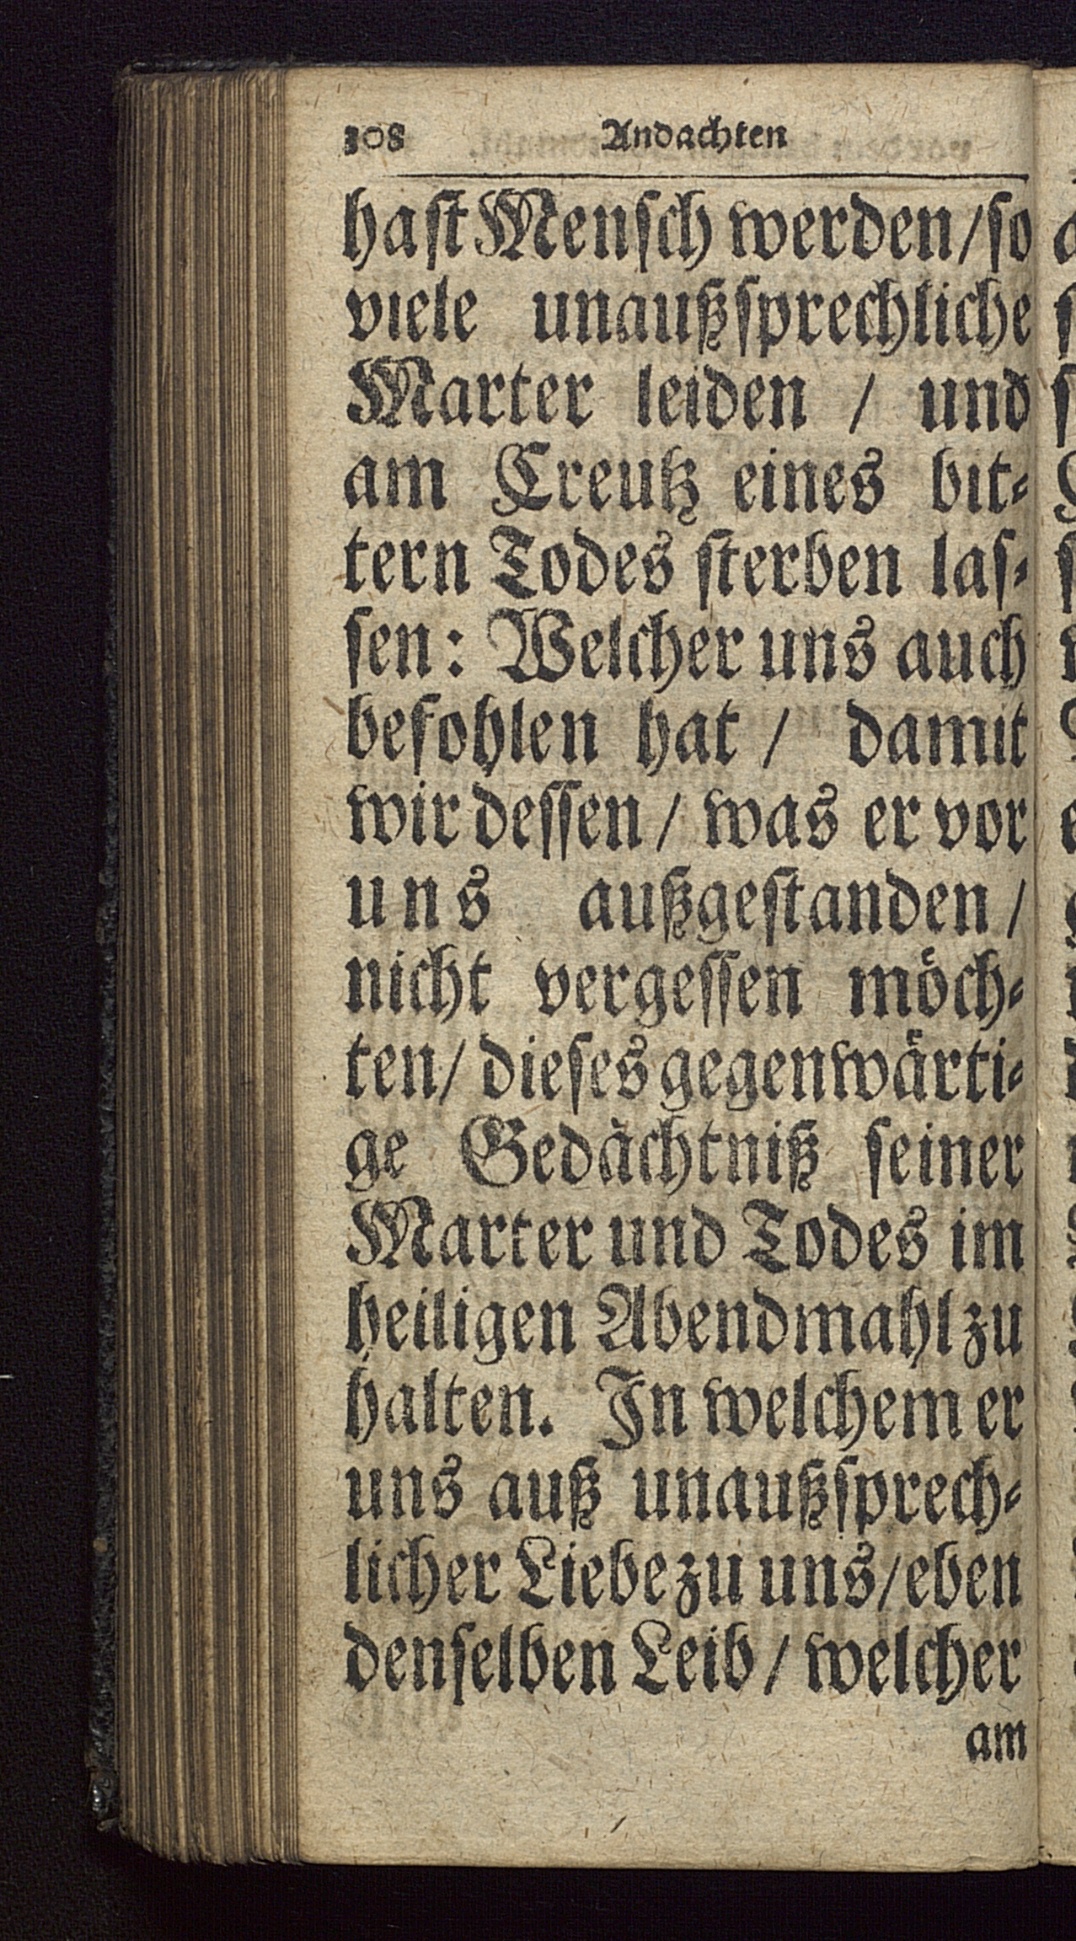 308 Andachten
haſt Menſch werden/ſo
viele unaußſprechliche
Marter leiden / und
am Creutz eines bit⸗
tern Todes ſterben laſ⸗
ſen: Welcher uns auch
befohlen hat / damit
wir deſſen / was er vor
uns außgeſtanden /
nicht vergeſſen möch⸗
ten/ dieſes gegenwärti⸗
ge Gedächtniß ſeiner
Marter und Todes im
heiligen Abendmahl zu
halten. In welchem er
uns auß unaußſprech⸗
licher Liebe zu uns/eben
denſelben Leib / welcher
am